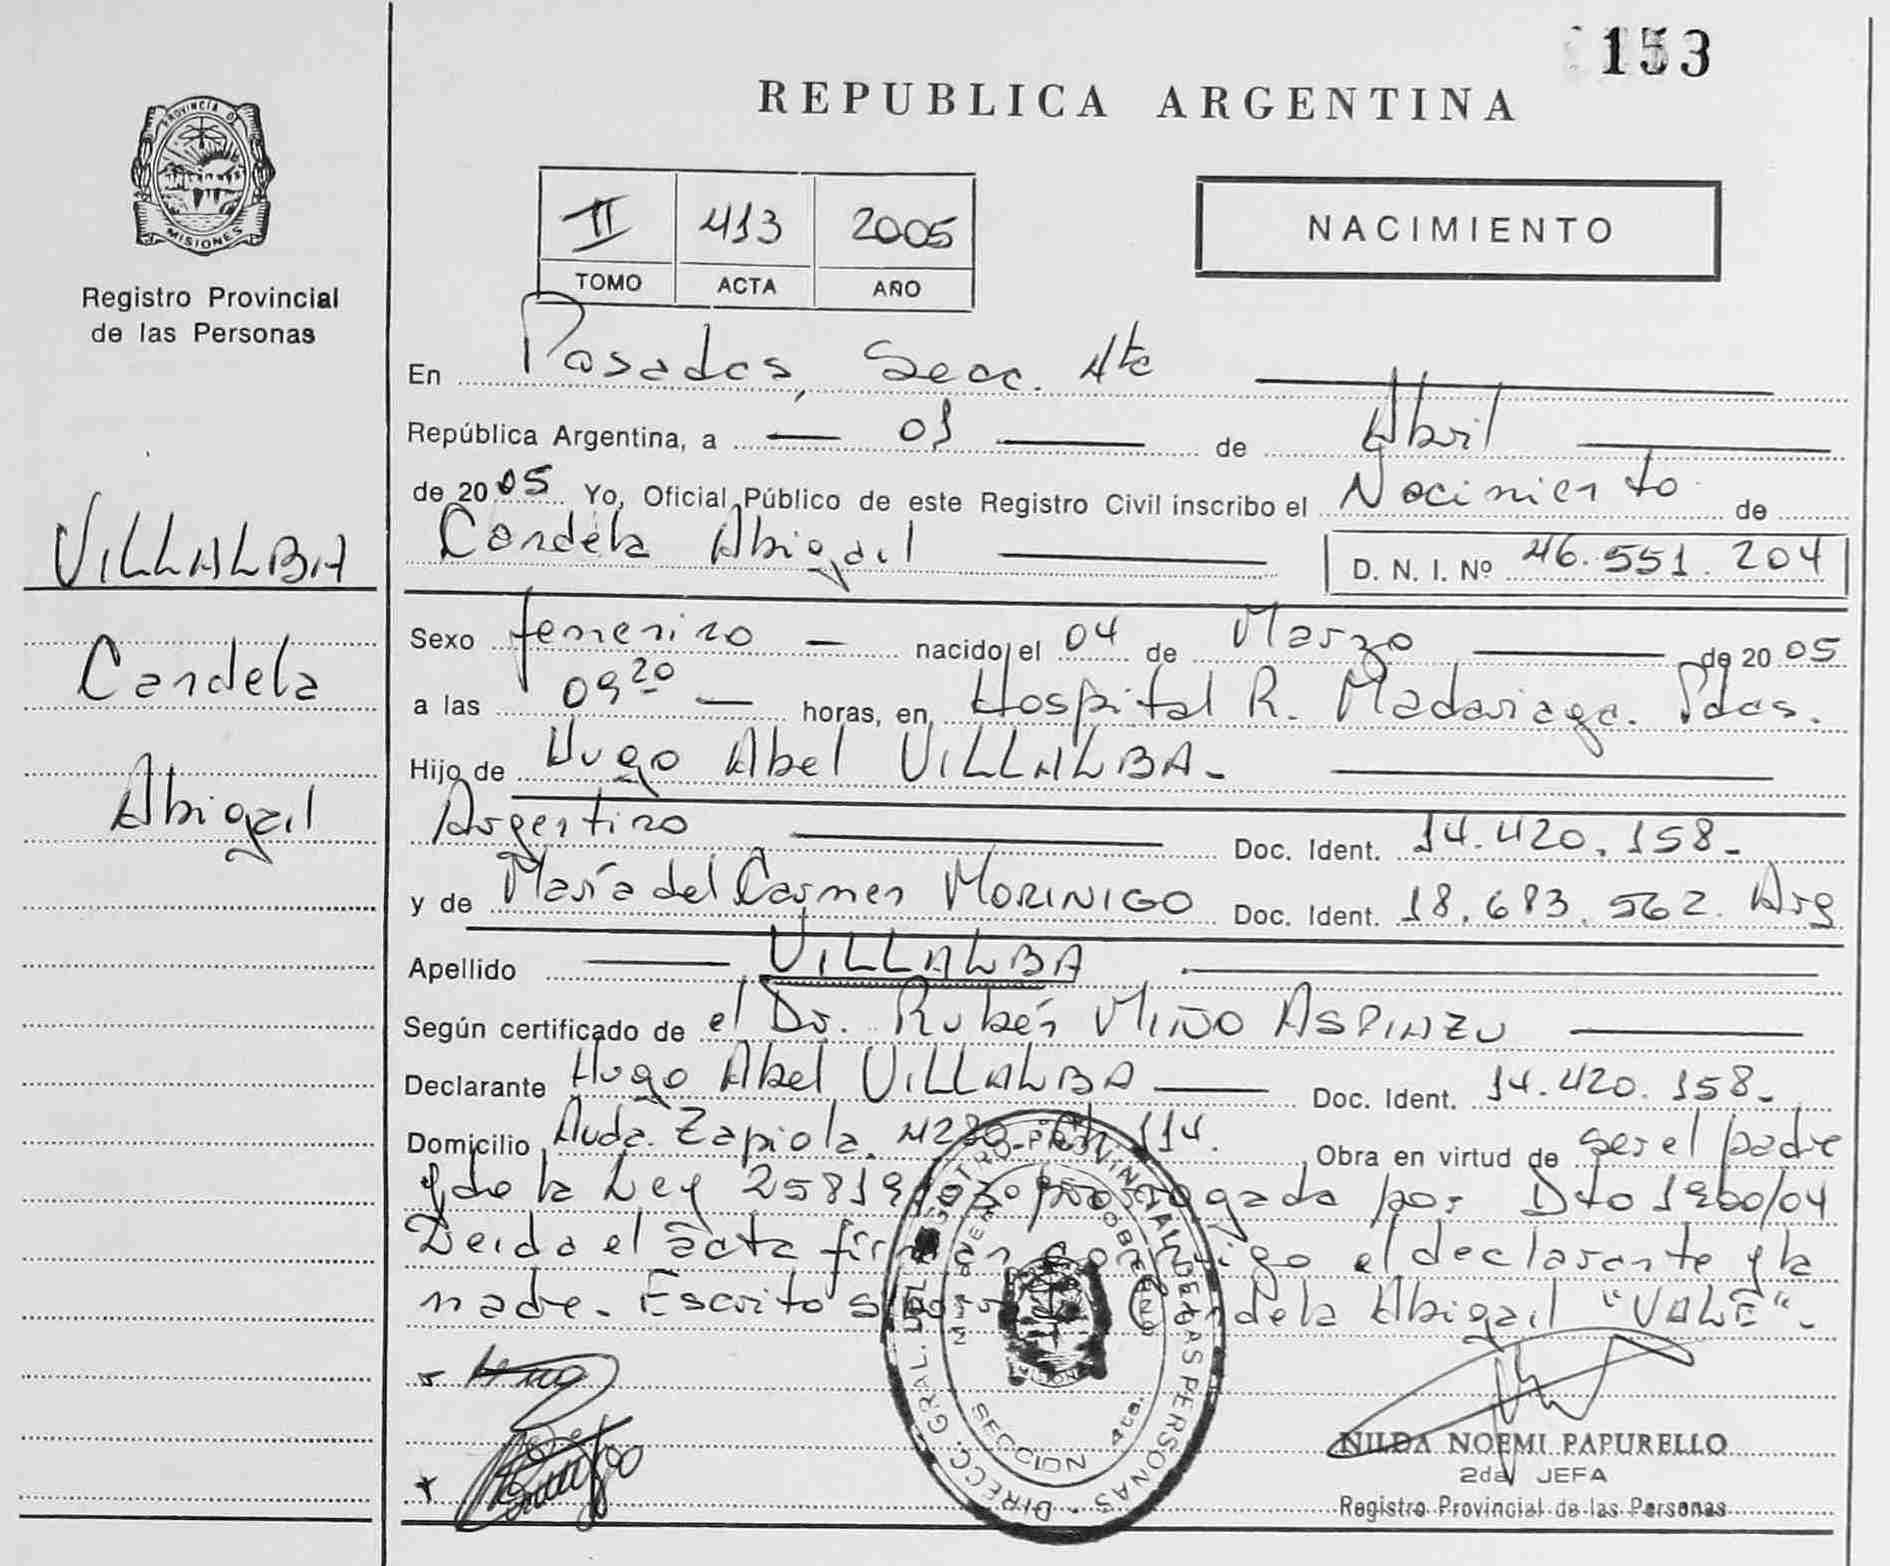 153
REPUBLICA ARGENTINA
PROVINCIA DE
MISIONES
Registro Provincial
de las Personas
II 413 2005
TOMO ACTA AÑO
NACIMIENTO
VILLALBA
Candela
Abigail
En Posadas, Secc. 4ta
República Argentina, a 01 de Abril
de 2005 Yo, Oficial Público de este Registro Civil inscribo el Nacimiento de
Candela Abigail D. N. I. Nº 46.551.204
Sexo femenino — nacido el 04 de Marzo de 2005
a las 09 20 — horas, en Hospital R. Madariaga. Pdas.
Hijo de Hugo Abel VILLALBA.-
Argentino Doc. Ident. 14.420.158-
y de María del Carmen MORINIGO Doc. Ident. 18.683.562. Arg
Apellido VILLALBA
Según certificado de el Dr. Rubén MIÑO
Declarante Hugo Abel VILLALBA Doc. Ident. 14.420.158-
Domicilio Avda. Zapiola. 114. Obra en virtud de ser el padre
y de la Ley 25819 por Dto 1900/04
Leida el acta firman conmigo el declarante y la
madre.- Escrito Candela Abigail "VALE".-
DIRECC. GRAL. DEL REGISTRO PROVINCIAL DE LAS PERSONAS
SECCION 4ta.
NILDA NOEMI PAPURELLO
2da JEFA
Registro Provincial de las Personas